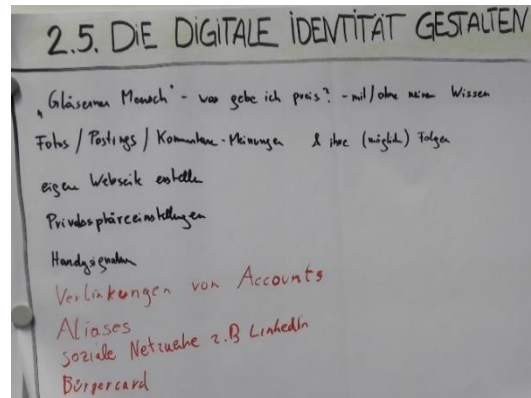 2.5. DiE DiGiTALE iDENTiTÄT GESTALTEN
„Gläserner Mensch" - was gebe ich preis? - mit/ohne meinem Wissen
Fotos / Postings / Kommentare - Meinungen & ihre (möglich) Folgen
eigene Webseite erstellen
Privatsphäreeinstellungen
Handysignatur
Verlinkungen von Accounts
Aliases
soziale Netzwerke z.B LinkedIn
Bürgercard